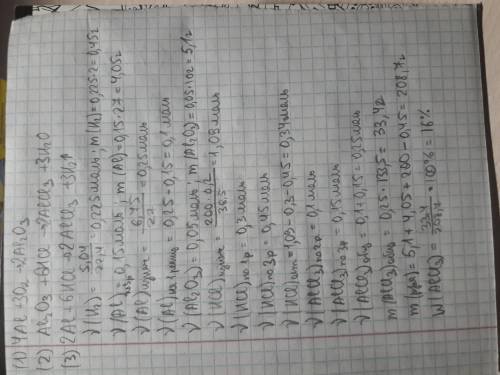 (1) 4Al + 3O₂ → 2Al₂O₃
(2) Al₂O₃ + 6HCl → 2AlCl₃ + 3H₂O
(3) 2Al + 6HCl → 2AlCl₃ + 3H₂↑
ν(H₂) = 5.04/22,4 = 0,225 моль; m(H₂) = 0,225·2 = 0,45г
ν(Al)по3р = 0,15 моль; m(Al) = 0,15·27 = 4,05г
ν(Al) = 6.75/27 = 0,25 моль
ν(Al) = 0,25 - 0,15 = 0,1 моль
ν(Al₂O₃) = 0,05 моль; m(Al₂O₃) = 0,05·102 = 5,1г
ν(HCl) = 200·0,2/36.5 = 1,09 моль
ν(HCl)по2р = 0,3 моль
ν(HCl)по3р = 0,45 моль
ν(HCl)ост = 1,09 - 0,3 - 0,45 = 0,34 моль
ν(AlCl₃)по2р = 0,1 моль
ν(AlCl₃)по3р = 0,15 моль
ν(AlCl₃)общ = 0,1 + 0,15 = 0,25 моль
m(AlCl₃)общ = 0,25·133,5 = 33,4г
m(р-ра) = 5,1 + 4,05 + 200 - 0,45 = 208,7г
W(AlCl₃) = 33,4/208,7 · 100% = 16%